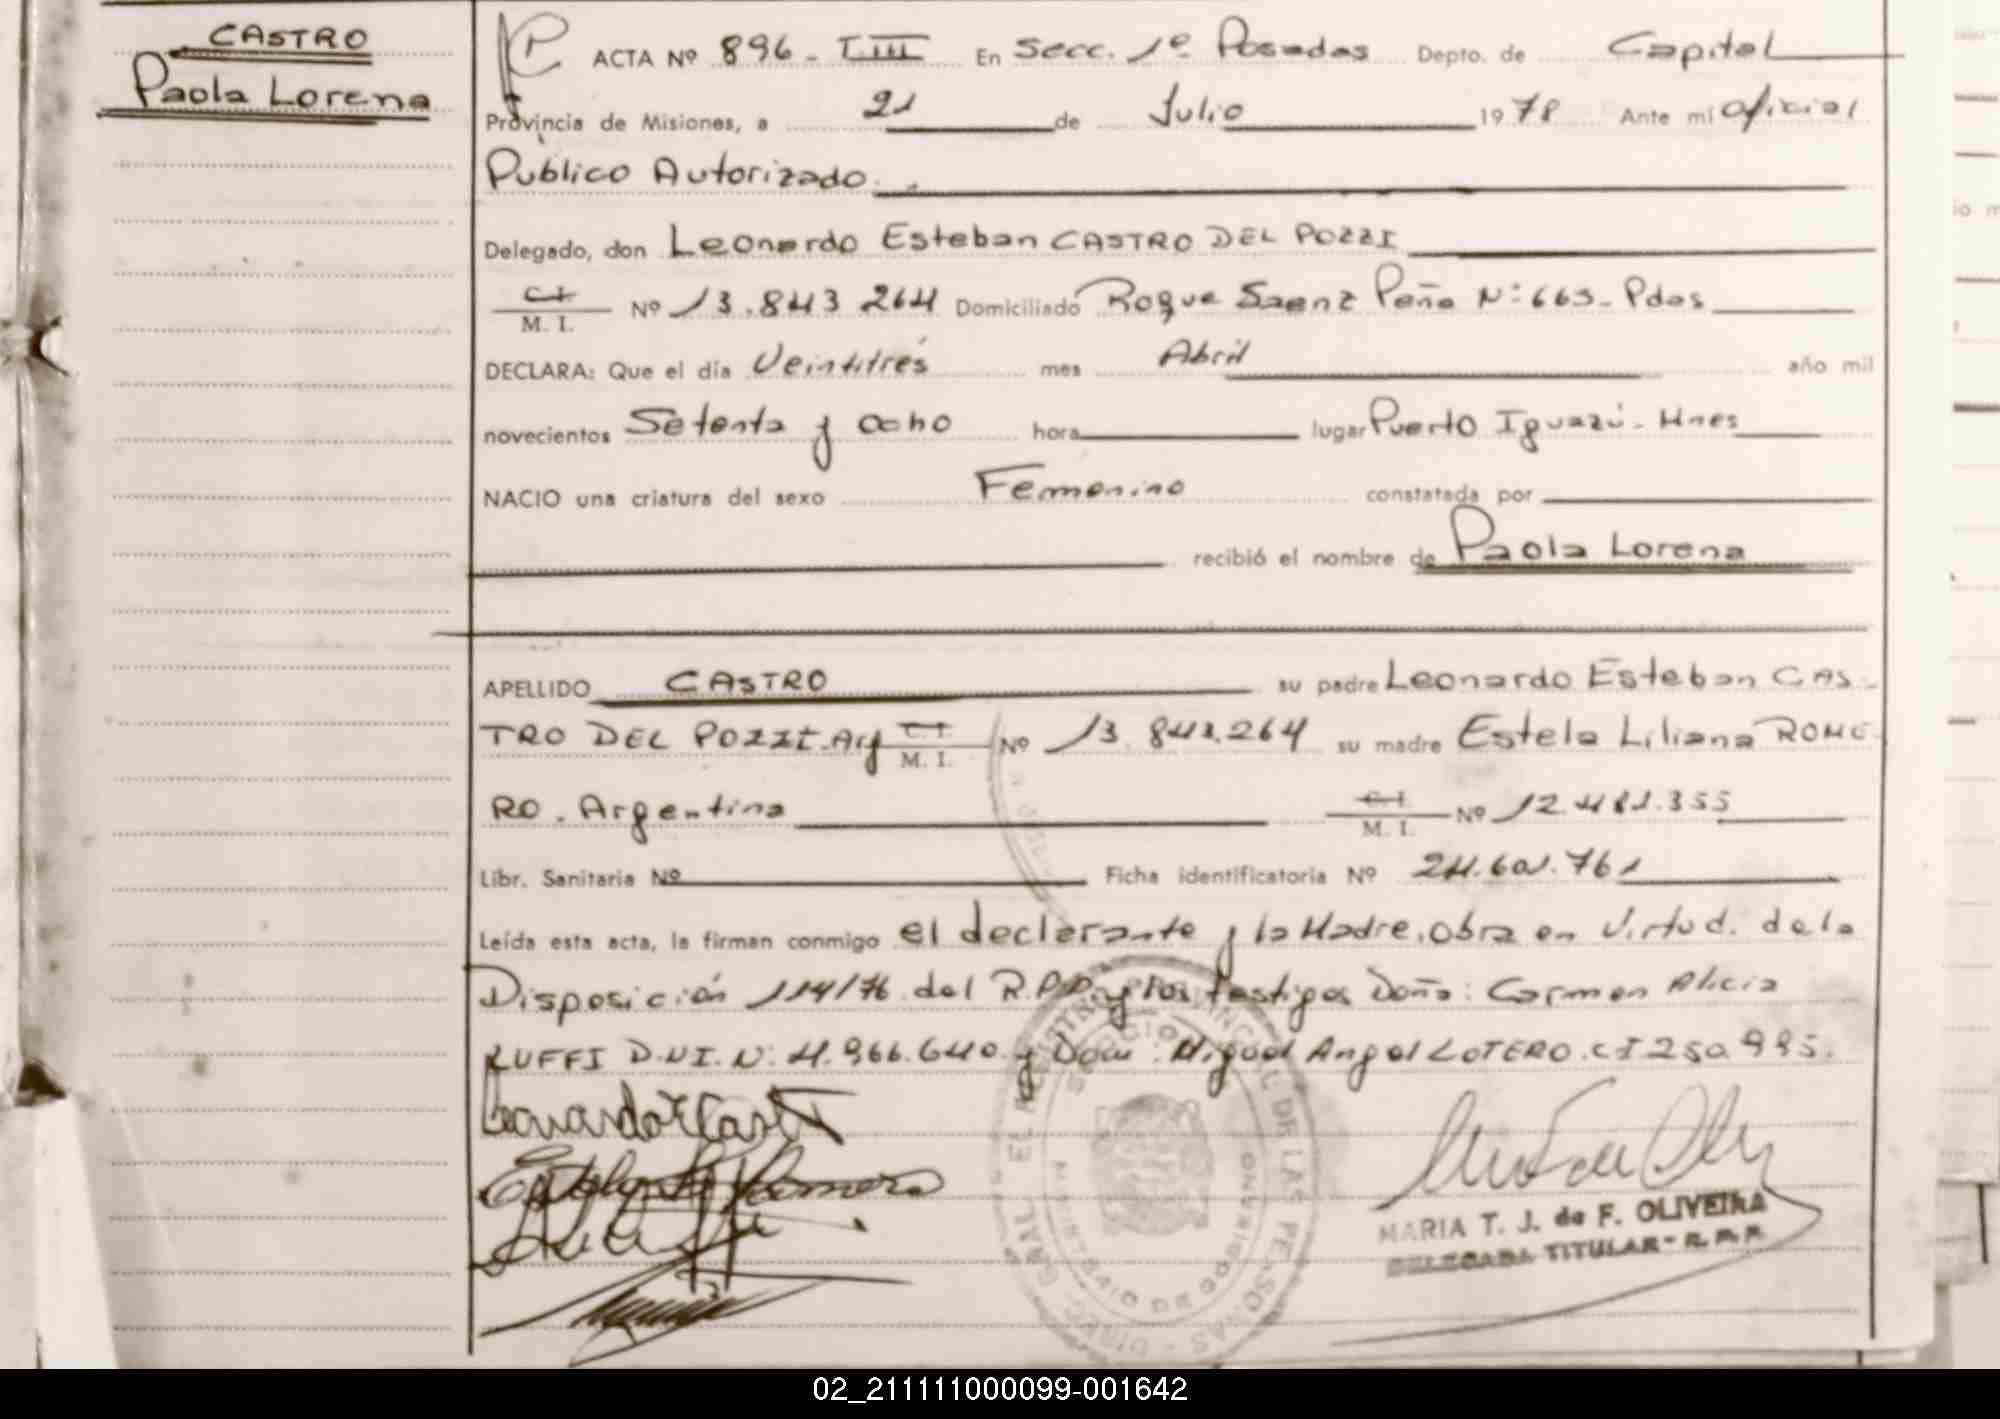 CASTRO
Paola Lorena
ACTA Nº 896 - T.III En Secc. 1º Posadas Depto. de Capital
Provincia de Misiones, a 21 de Julio 1978 Ante mí oficial
Publico Autorizado.
Delegado, don Leonardo Esteban CASTRO DEL POZZI
C.I. M. I. Nº 13.843 264 Domiciliado Roque Saenz Peña Nº: 665 - Pdas
DECLARA: Que el día Veintitrés mes Abril año mil
novecientos Setenta y ocho hora lugar Puerto Iguazú - Mnes
NACIO una criatura del sexo Femenino constatada por
recibió el nombre de Paola Lorena
APELLIDO CASTRO su padre Leonardo Esteban CAS-
TRO DEL POZZI - Arg C.I. M. I. Nº 13.843.264 su madre Estela Liliana ROME-
RO. Argentina C.I. M. I. Nº 12.481.355
Libr. Sanitaria Nº Ficha identificatoria Nº 24.601.761
Leída esta acta, la firman conmigo el declarante y la Madre, obra en virtud de la
Disposición 114/76 del R.P.P. y los testigos Doña: Carmen Alicia
RUFFI D.NI. N: 4.966.640 y Don: Miguel Angel LOTERO. CI 250.995.
MARIA T. J. de F. OLIVEIRA
DELEGADA TITULAR - R. P. P.
02_211111000099-001642